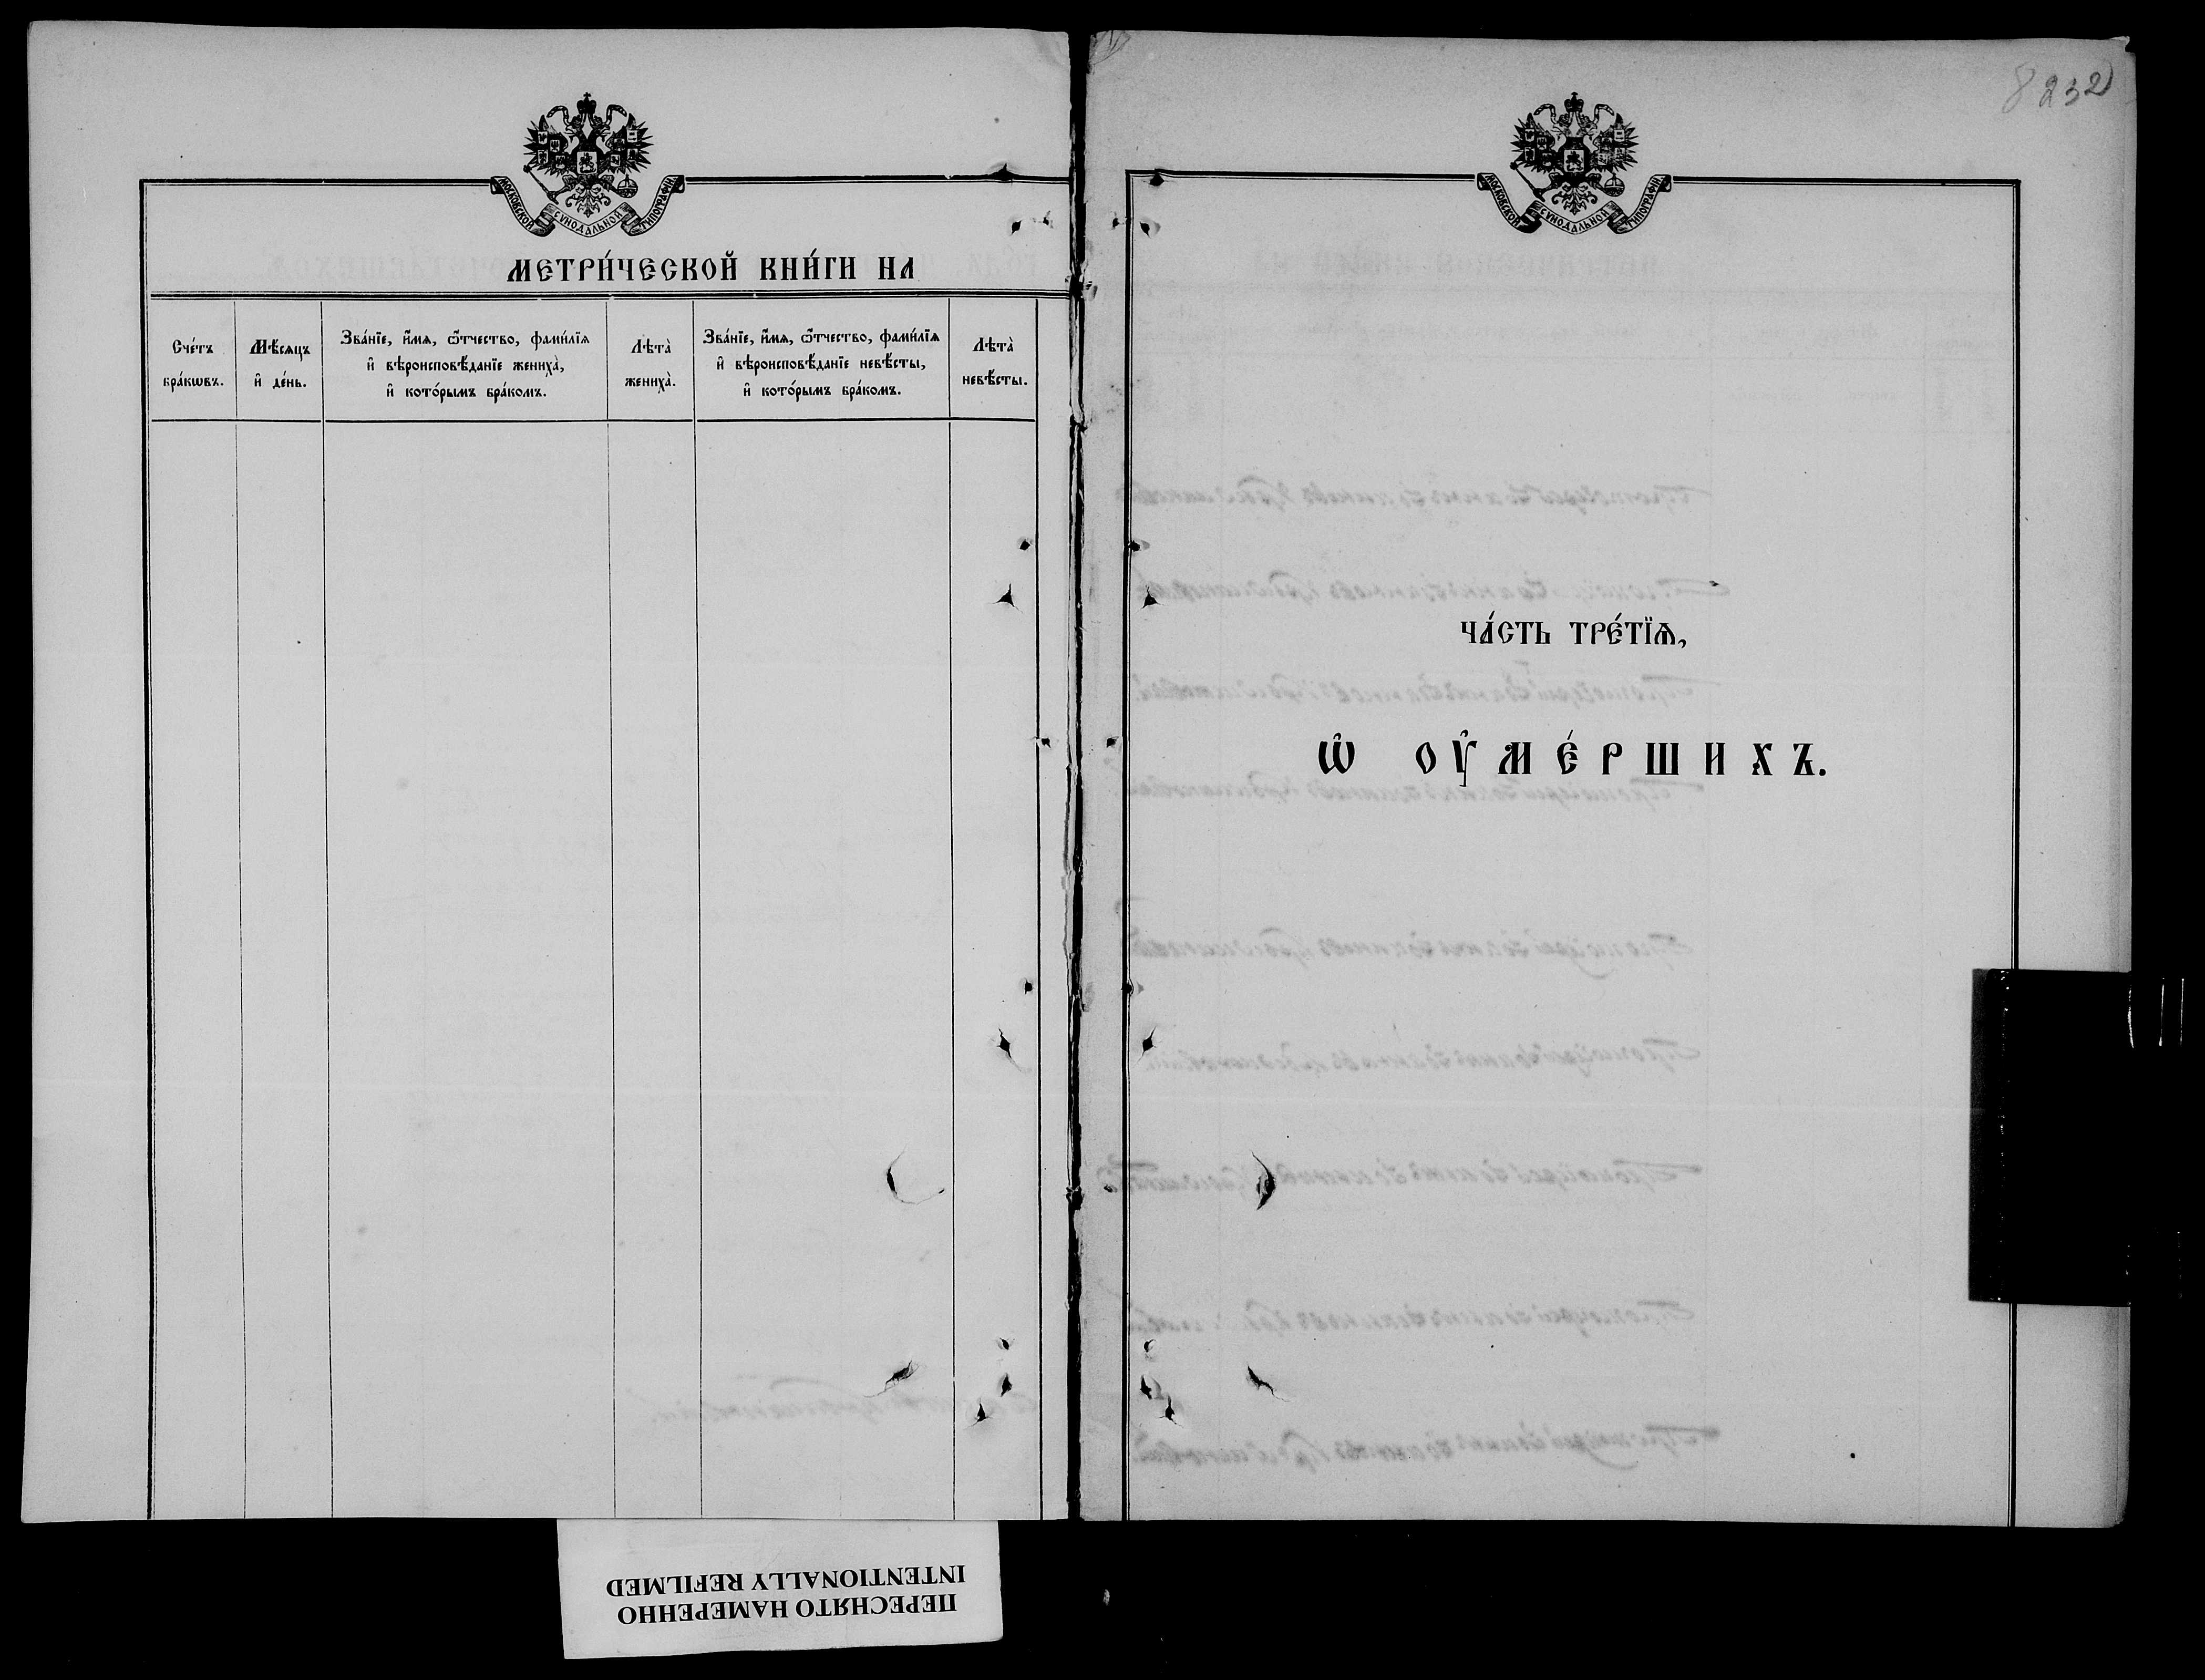 МОСКОВСКОЙ СѴНОДАЛЬНОЙ ТИПОГРАФІИ
МЕТРИ́ЧЕСКОЙ КНИ́ГИ НА
Сче́тъ
бра́кѡвъ.
Мѣ́сяцъ
и҆ де́нь.
Зва́нїе, и҆́мѧ, ѻ҆́тчество, фами́лїѧ
и҆ вѣроисповѣ́данїе жениха̀,
и҆ кото́рымъ бра́комъ.
Лѣта̀
жениха̀.
Зва́нїе, и҆́мѧ, ѻ҆́тчество, фами́лїѧ
и҆ вѣроисповѣ́данїе невѣ́сты,
и҆ кото́рымъ бра́комъ.
Лѣта̀
невѣ́сты.
8232
МОСКОВСКОЙ СѴНОДАЛЬНОЙ ТИПОГРАФІИ
ЧА́СТЬ ТРЕ́ТЇѦ,
Ѡ҆ ОУ҆МЕ́РШИХЪ.
ПЕРЕСНЯТО НАМЕРЕННО
INTENTIONALLY REFILMED